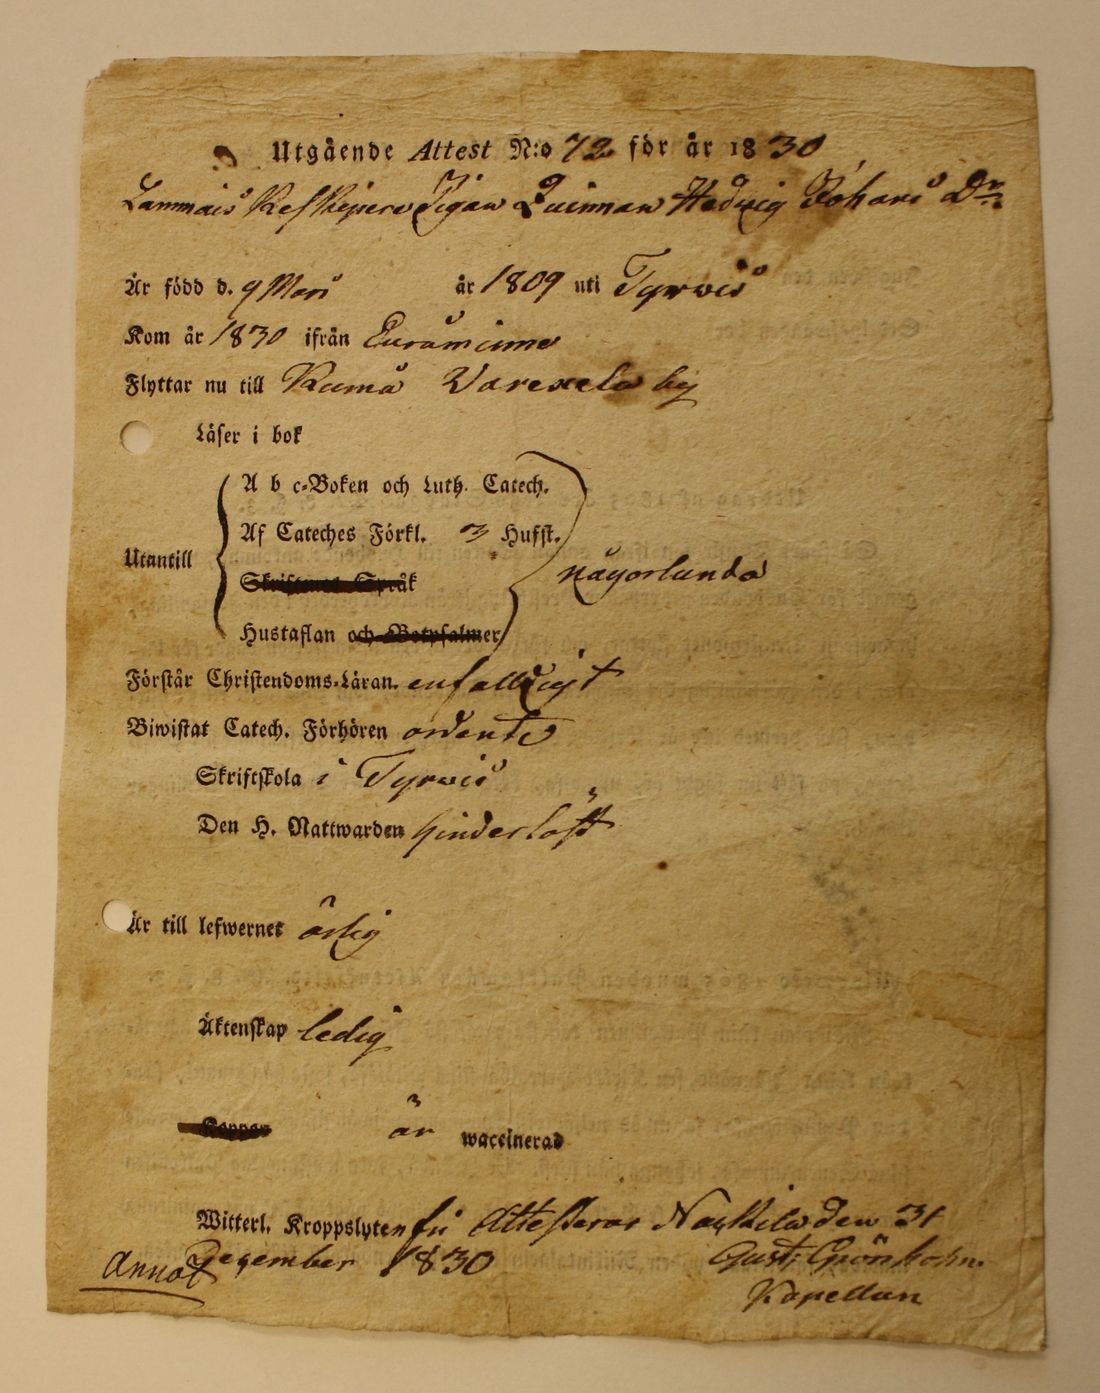 Utgående Attest N:o 72 för år 1830
Lammais Keskipere Pigan Quinnan Hedvig Johans Dr.
Är född d. 9 Mars år 1809 uti Tyrwis
Kom år 1830 ifrån Euraminne
Flyttar nu till Kumå by
Läser i bok
A b c-Boken och Luth. Catech.
Af Cateches Förkl. 3 Hufst.
Utantill någorlunda
Skriftenes Språk
Hustaflan och Botpsalmer
Förstår Christendoms-Läran. enfalldigt
Biwistat Catech. Förhören ordentl
Skriftskola i Tyrwis
Den H. Nattwarden hinderlöst
Är till lefwernet ärlig
Äktenskap ledig
Koppor är waccinerad
Witterl. Kroppslyten fri Attesterar Nackila den 31
December 1830 Gust: Grönholm.
Annot Kapellan